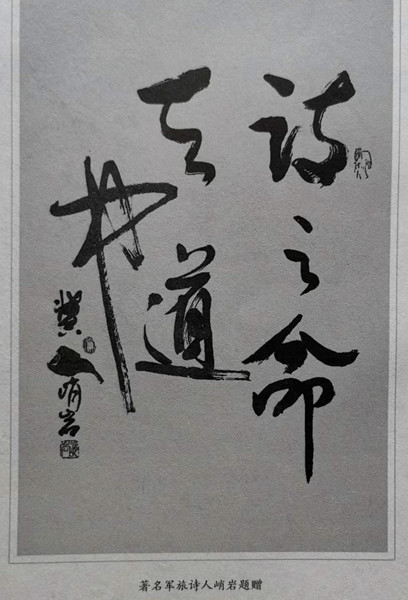 诗之命
道
冀人峭岩
著名军旅诗人峭岩题赠